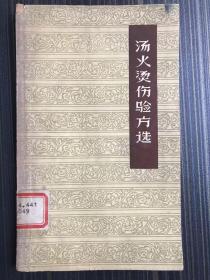 汤火烫伤验方选
4.441
049